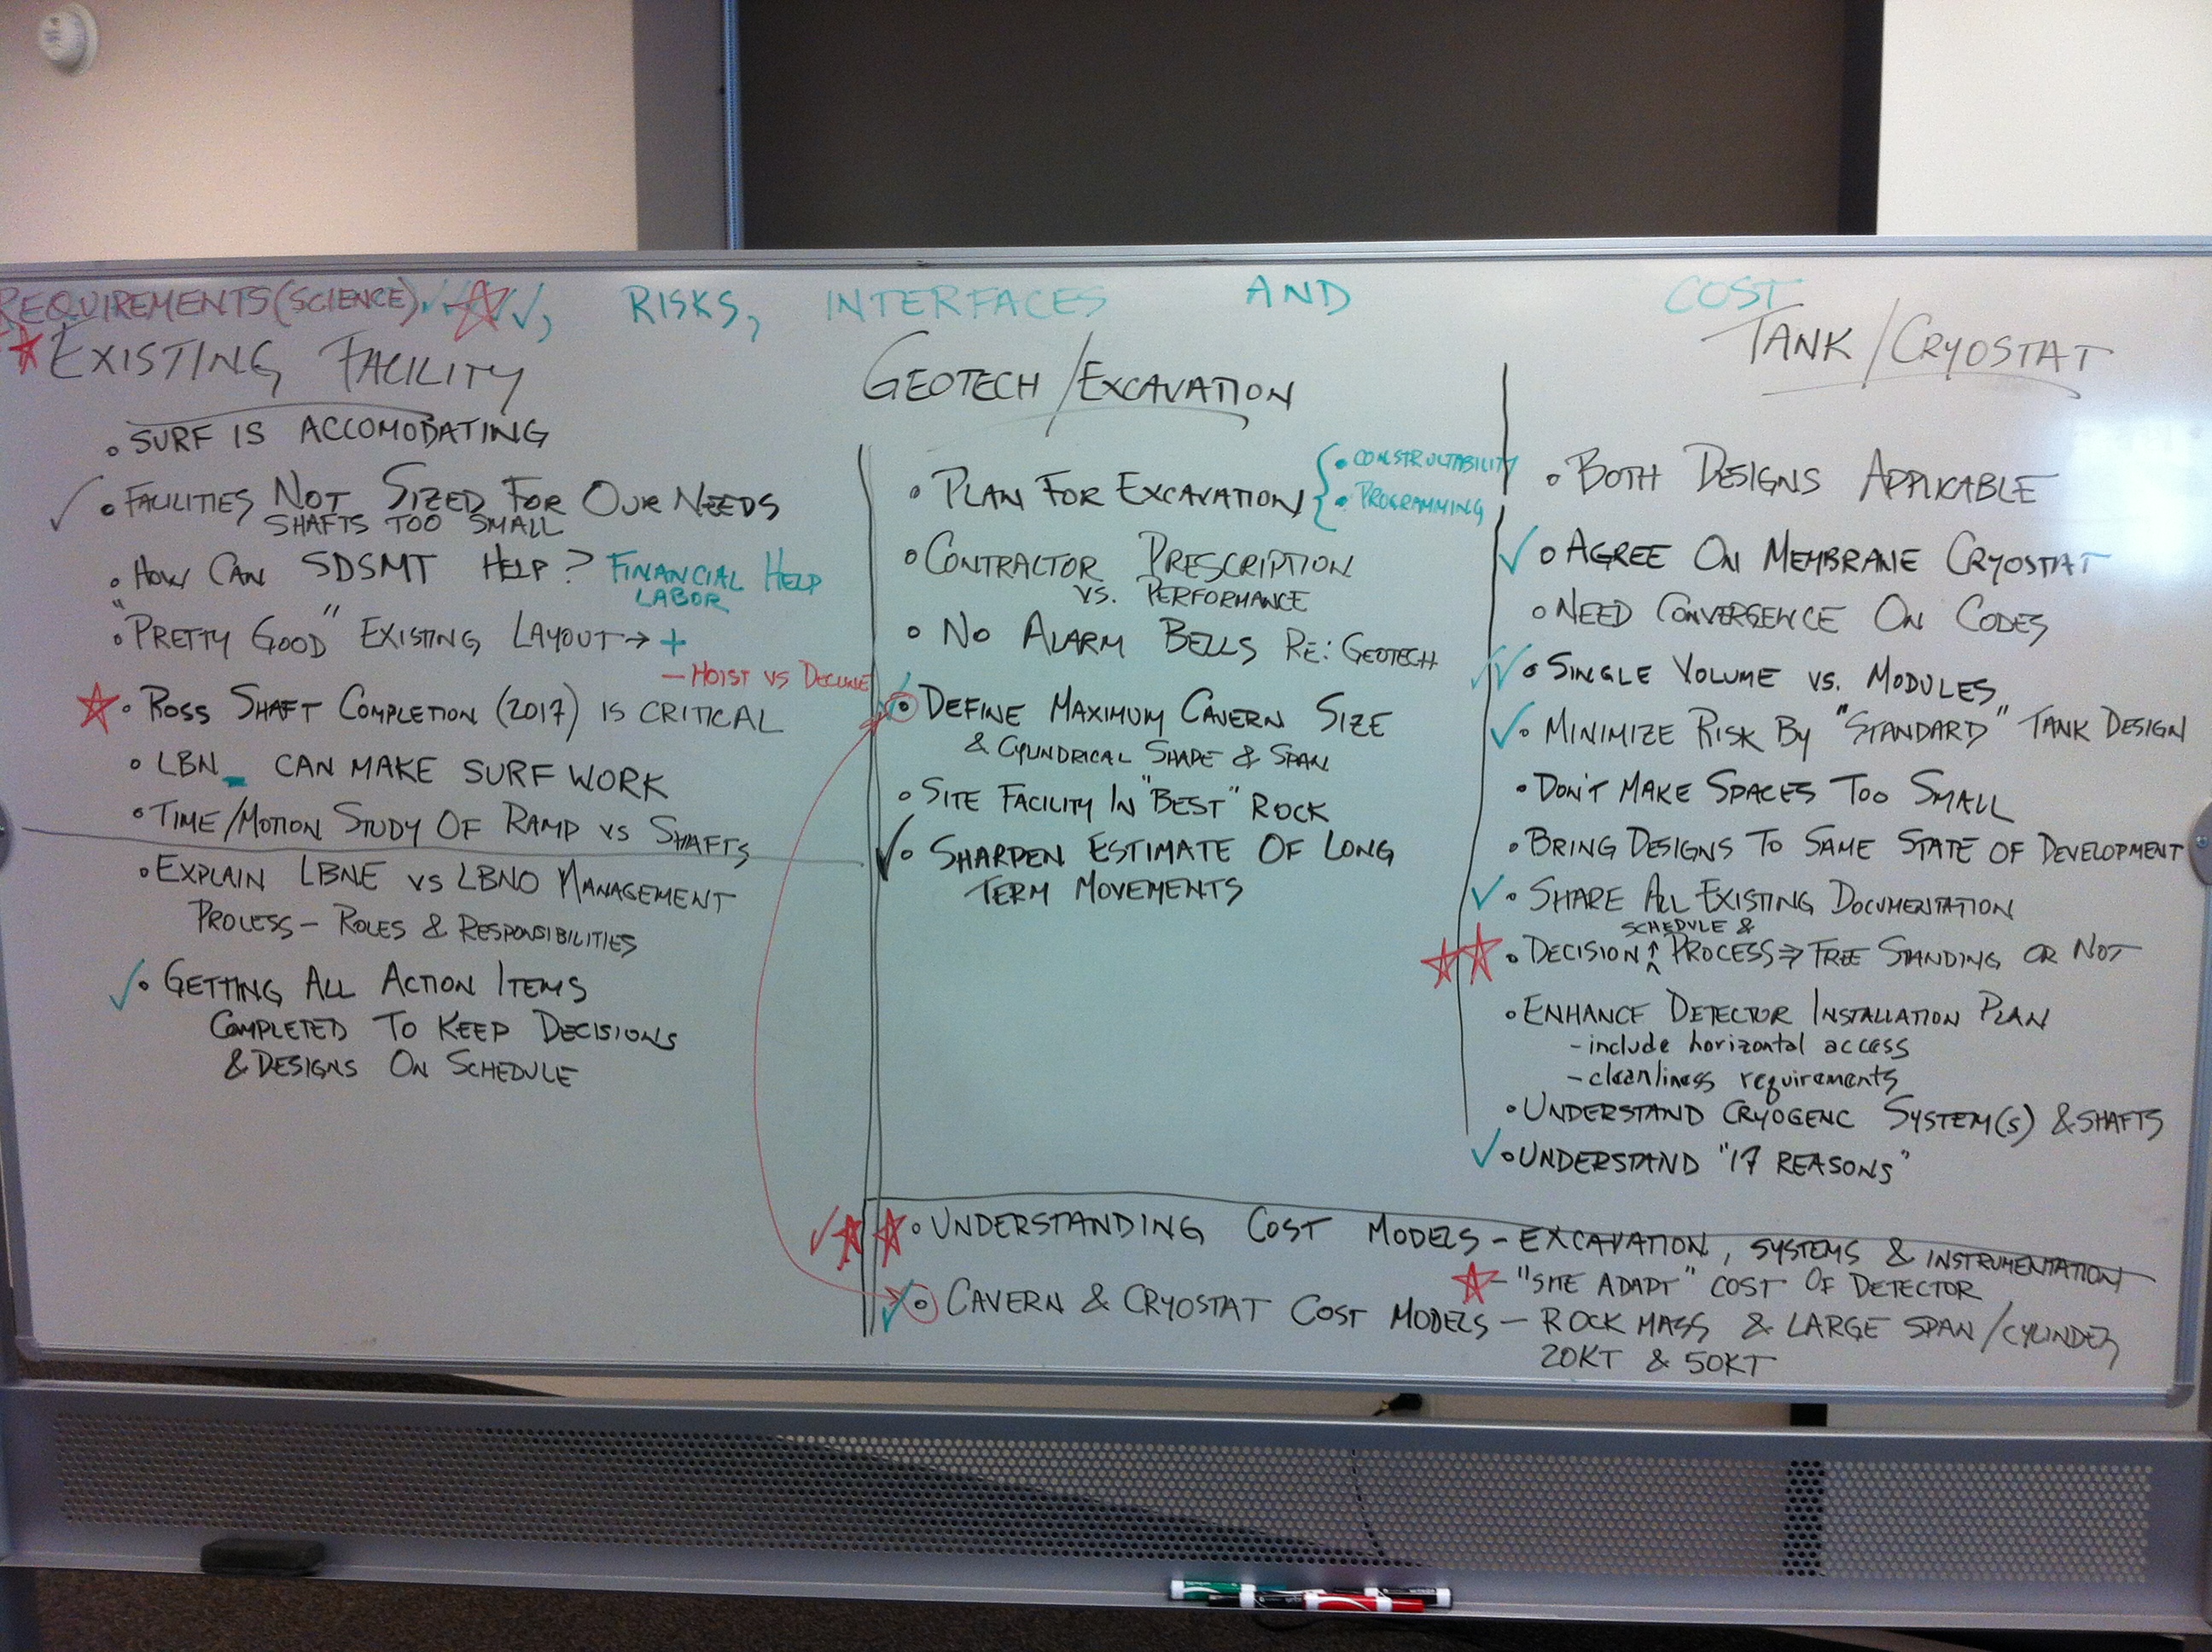 REQUIREMENTS(SCIENCE), RISKS, INTERFACES AND COST
EXISTING FACILITY
• SURF IS ACCOMODATING
• FACILITIES NOT SIZED FOR OUR NEEDS
SHAFTS TOO SMALL
• HOW CAN SDSMT HELP? FINANCIAL HELP
LABOR
• "PRETTY GOOD" EXISTING LAYOUT → +
– HOIST VS DECLINE
• ROSS SHAFT COMPLETION (2017) IS CRITICAL
• LBN_ CAN MAKE SURF WORK
• TIME/MOTION STUDY OF RAMP VS SHAFTS
• EXPLAIN LBNE VS LBNO MANAGEMENT
PROCESS – ROLES & RESPONSIBILITIES
• GETTING ALL ACTION ITEMS
COMPLETED TO KEEP DECISIONS
& DESIGNS ON SCHEDULE
GEOTECH/EXCAVATION
• PLAN FOR EXCAVATION { • CONSTRUCTABILITY
• PROGRAMMING
• CONTRACTOR PRESCRIPTION
VS. PERFORMANCE
• NO ALARM BELLS RE: GEOTECH
• DEFINE MAXIMUM CAVERN SIZE
& CYLINDRICAL SHAPE & SPAN
• SITE FACILITY IN "BEST" ROCK
• SHARPEN ESTIMATE OF LONG
TERM MOVEMENTS
TANK/CRYOSTAT
• BOTH DESIGNS APPLICABLE
• AGREE ON MEMBRANE CRYOSTAT
• NEED CONVERGENCE ON CODES
• SINGLE VOLUME VS. MODULES
• MINIMIZE RISK BY "STANDARD" TANK DESIGN
• DON'T MAKE SPACES TOO SMALL
• BRING DESIGNS TO SAME STATE OF DEVELOPMENT
• SHARE ALL EXISTING DOCUMENTATION
SCHEDULE &
• DECISION ↑ PROCESS ⇒ FREE STANDING OR NOT
• ENHANCE DETECTOR INSTALLATION PLAN
– include horizontal access
– cleanliness requirements
• UNDERSTAND CRYOGENC SYSTEM(S) & SHAFTS
• UNDERSTAND "17 REASONS"
• UNDERSTANDING COST MODELS – EXCAVATION, SYSTEMS & INSTRUMENTATION
– "SITE ADAPT" COST OF DETECTOR
• CAVERN & CRYOSTAT COST MODELS – ROCK MASS & LARGE SPAN/CYLINDER
20KT & 50KT